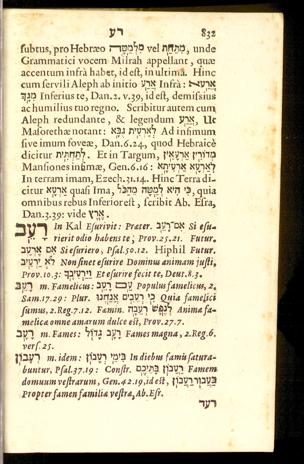 רע 832
subtus, pro Hebræo מִלְמַטָּה vel מִתַּחַת, unde
Grammatici vocem Milrah appellant, quæ
accentum infrà habet, id est, in ultima. Hinc
cum servili Aleph ab initio אֲרַע Infrà:
Inferius te, Dan. 2. v. 39, id est, demissius
ac humilius tuo regno. Scribitur autem cum
Aleph redundante, & legendum אֲרַע, ut
Masorethæ notant: לְאַרְעִית גֻּבָּא Ad infimum
sive imum foveæ, Dan. 6.24, quod Hebraicè
dicitur לְתַחְתִּית Et in Targum, מְדוֹרִין אַרְעָאִין
Mansiones infimæ, Gen. 6.16:
In terram imam, Ezech. 31.14. Hinc Terra di-
citur אַרְעָא quasi Ima, כִּי הִיא לְמַטָּה מֵהַכֹּל, quia
omnibus rebus Inferior est, scribit Ab. Esra,
Dan. 3.39: vide אֶרֶץ.
רָעֵב In Kal Esurivit: Præter. אִם רָעֵב Si esu-
rierit odio habens te, Prov. 25.21. Futur.
אִם אֶרְעַב Si esuriero, Psal. 50.12. Hiphil Futur.
לֹא יַרְעִיב Non sinet esurire Dominus animam justi,
Prov. 10.3: וַיַּרְעִיבֶךָ Et esurire fecit te, Deut. 8.3.
רָעֵב m. Famelicus: הָעָם רָעֵב Populus famelicus, 2.
Sam. 17.29: Plur. כִּי רְעֵבִים אֲנַחְנוּ Quia famelici
sumus, 2. Reg. 7.12. Fæmin. נֶפֶשׁ רְעֵבָה Anima fa-
melica omne amarum dulce est, Prov. 27.7.
רָעָב m. Fames: רָעָב גָּדוֹל Fames magna, 2. Reg. 6.
vers. 25.
רְעָבוֹן m. idem: בִּימֵי רְעָבוֹן In diebus famis satura-
buntur, Psal. 37.19: Constr. רַעֲבוֹן בָּתֵּיכֶם Famem
domuum vestrarum, Gen. 42.19, id est, בַּעֲבוּר רַעֲבוֹן
Propter famen familiæ vestræ, Ab. Esr.
רעד